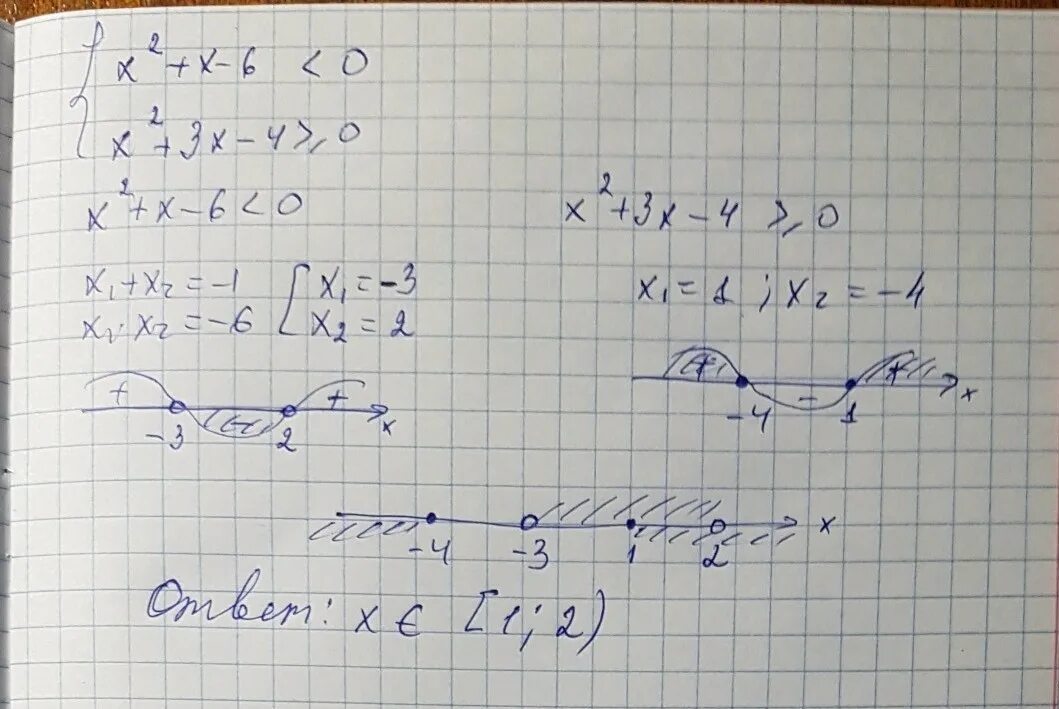 { x² + x - 6 < 0
x² + 3x - 4 ⩾ 0
x² + x - 6 < 0
x₁ + x₂ = -1 [ x₁ = -3
x₁ · x₂ = -6 x₂ = 2
+ - + x
-3 2
x² + 3x - 4 ⩾ 0
x₁ = 1 ; x₂ = -4
+ - + x
-4 1
x
-4 -3 1 2
Ответ: x ∈ [1; 2)